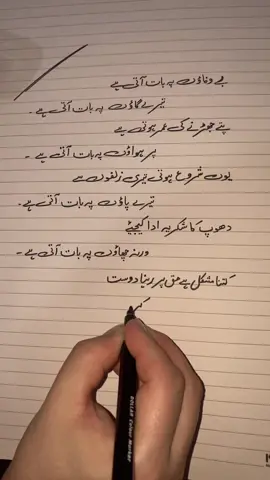 بے وفاؤں پہ بات آتی ہے
تیرے گاؤں پہ بات آتی ہے ۔
پتے جھڑنے کی عمر ہوتی ہے
پر ہواؤں پہ بات آتی ہے ۔
یوں شروع ہوتی تیری زلفوں سے
تیرے پاؤں پہ بات آتی ہے ۔
دھوپ کا شکریہ ادا کیجیئے
ورنہ چھاؤں پہ بات آتی ہے ۔
کتنا مشکل ہے حق پر رہنا دوست
DOLLAR